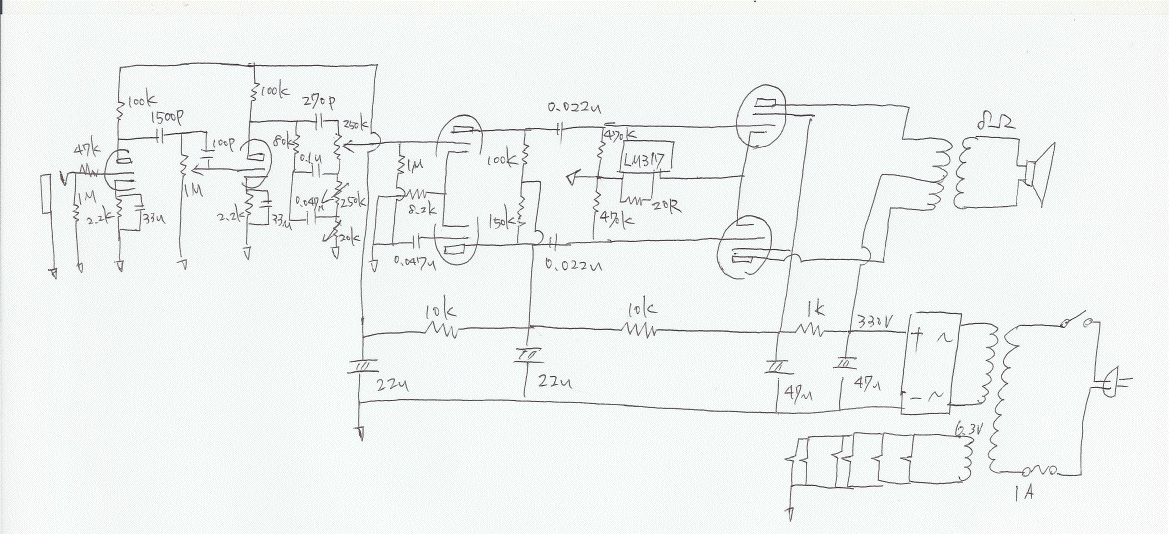 100k
1500p
47k
1M
2.2k
33u
100p
1M
100k
270p
250k
80k
0.1u
0.047u
250k
20k
2.2k
33u
1M
8.2k
0.047u
100k
150k
0.022u
0.022u
470k
LM317
20R
470k
8Ω
10k
10k
1k
330V
22u
22u
47u
47u
+ ~
- ~
6.3V
1A